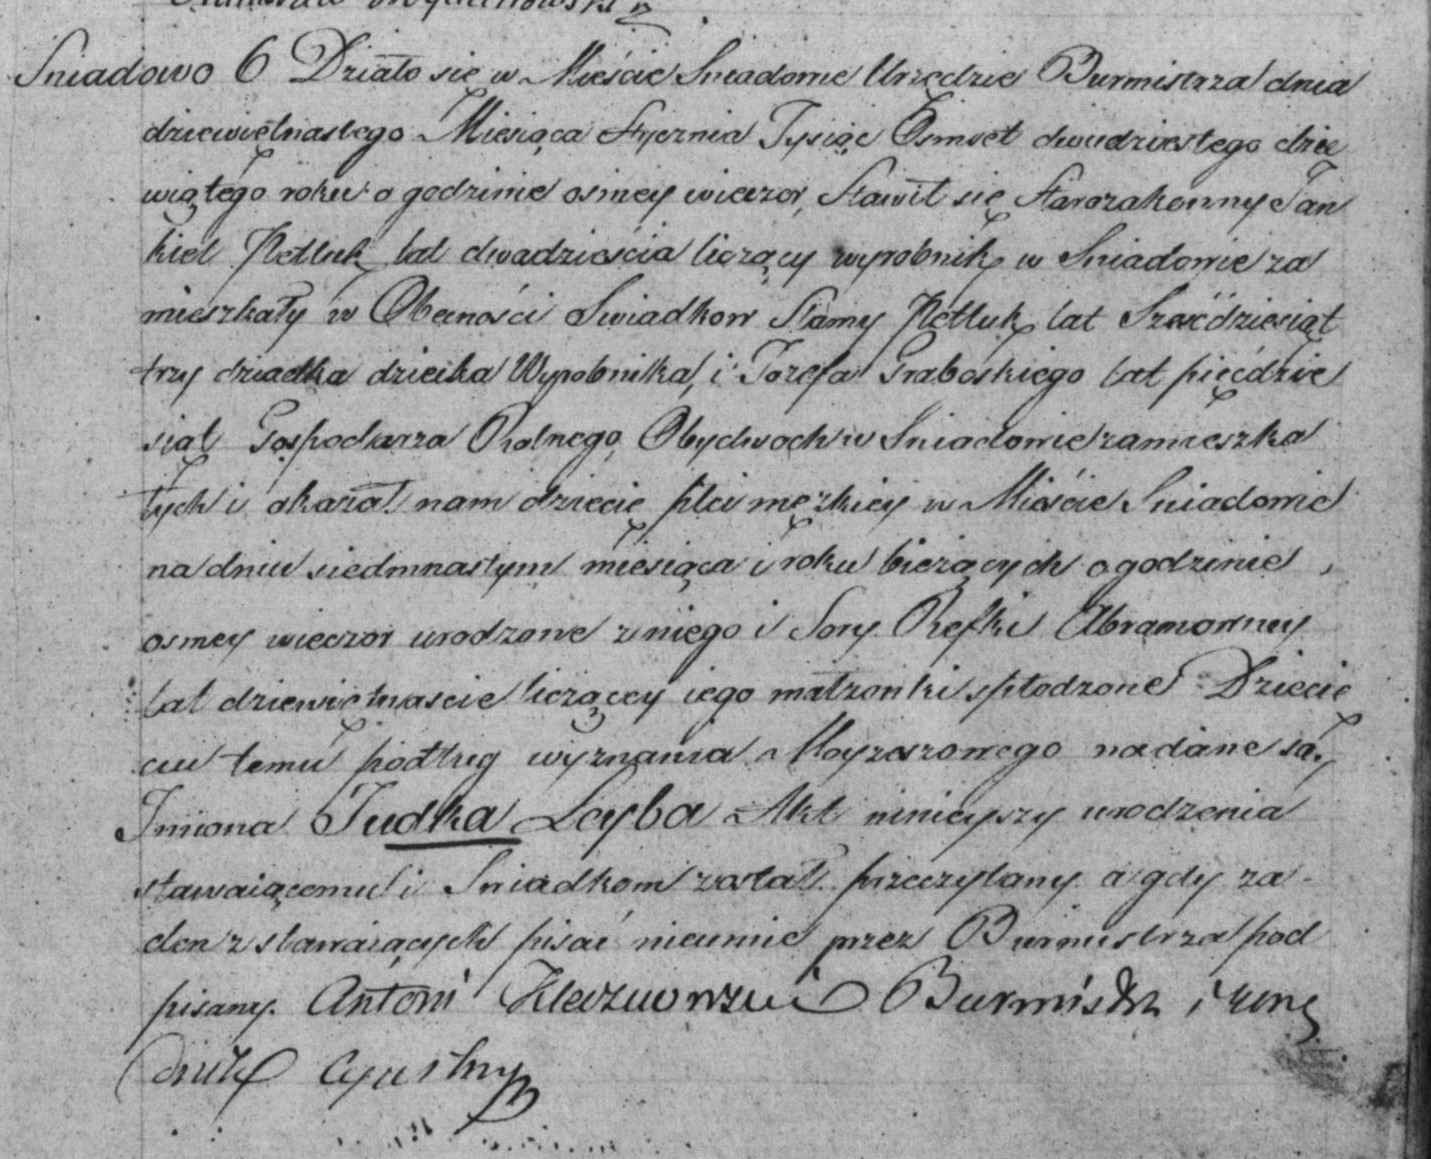 Sniadowo 6 Działo się w Mieście Sniadowie Urzędzie Burmistrza dnia
dziewiętnastego Miesiąca Stycznia Tysiąc Osmset dwudziestego dzie
wiątego roku o godzinie osmey wieczor, Stawił się Starozakonny Jan
kiel Petluk lat dwadzieścia liczący wyrobnik w Sniadowie za
mieszkały w Obecności Swiadkow Slamy Petluk lat Sześćdziesiąt
trzy dziadka dziecka Wyrobnika, i Jozefa Graboskiego lat pięćdzie
siąt Gospodarza Rolnego, Obydwoch w Sniadowie zamieszka
łych i okazał nam dziecię płci męzkiey w Mieście Sniadowie
na dniu siedmnastym miesiąca i roku bieżących o godzinie
osmey wieczor urodzone z niego i Sory Refki Abramowney
lat dziewiętnascie liczącey iego małzonki spłodzone Dziecię
ciu temu podług wyznania Moyzeszowego nadane są
Imiona Judka Leyba Akt ninieyszy urodzenia
stawaiącemu i Swiadkom został przeczytany a gdy za-
den z stawaiących pisać nieumie przez Burmistrza pod
pisany. Antoni Burmistrz i
Cywilny